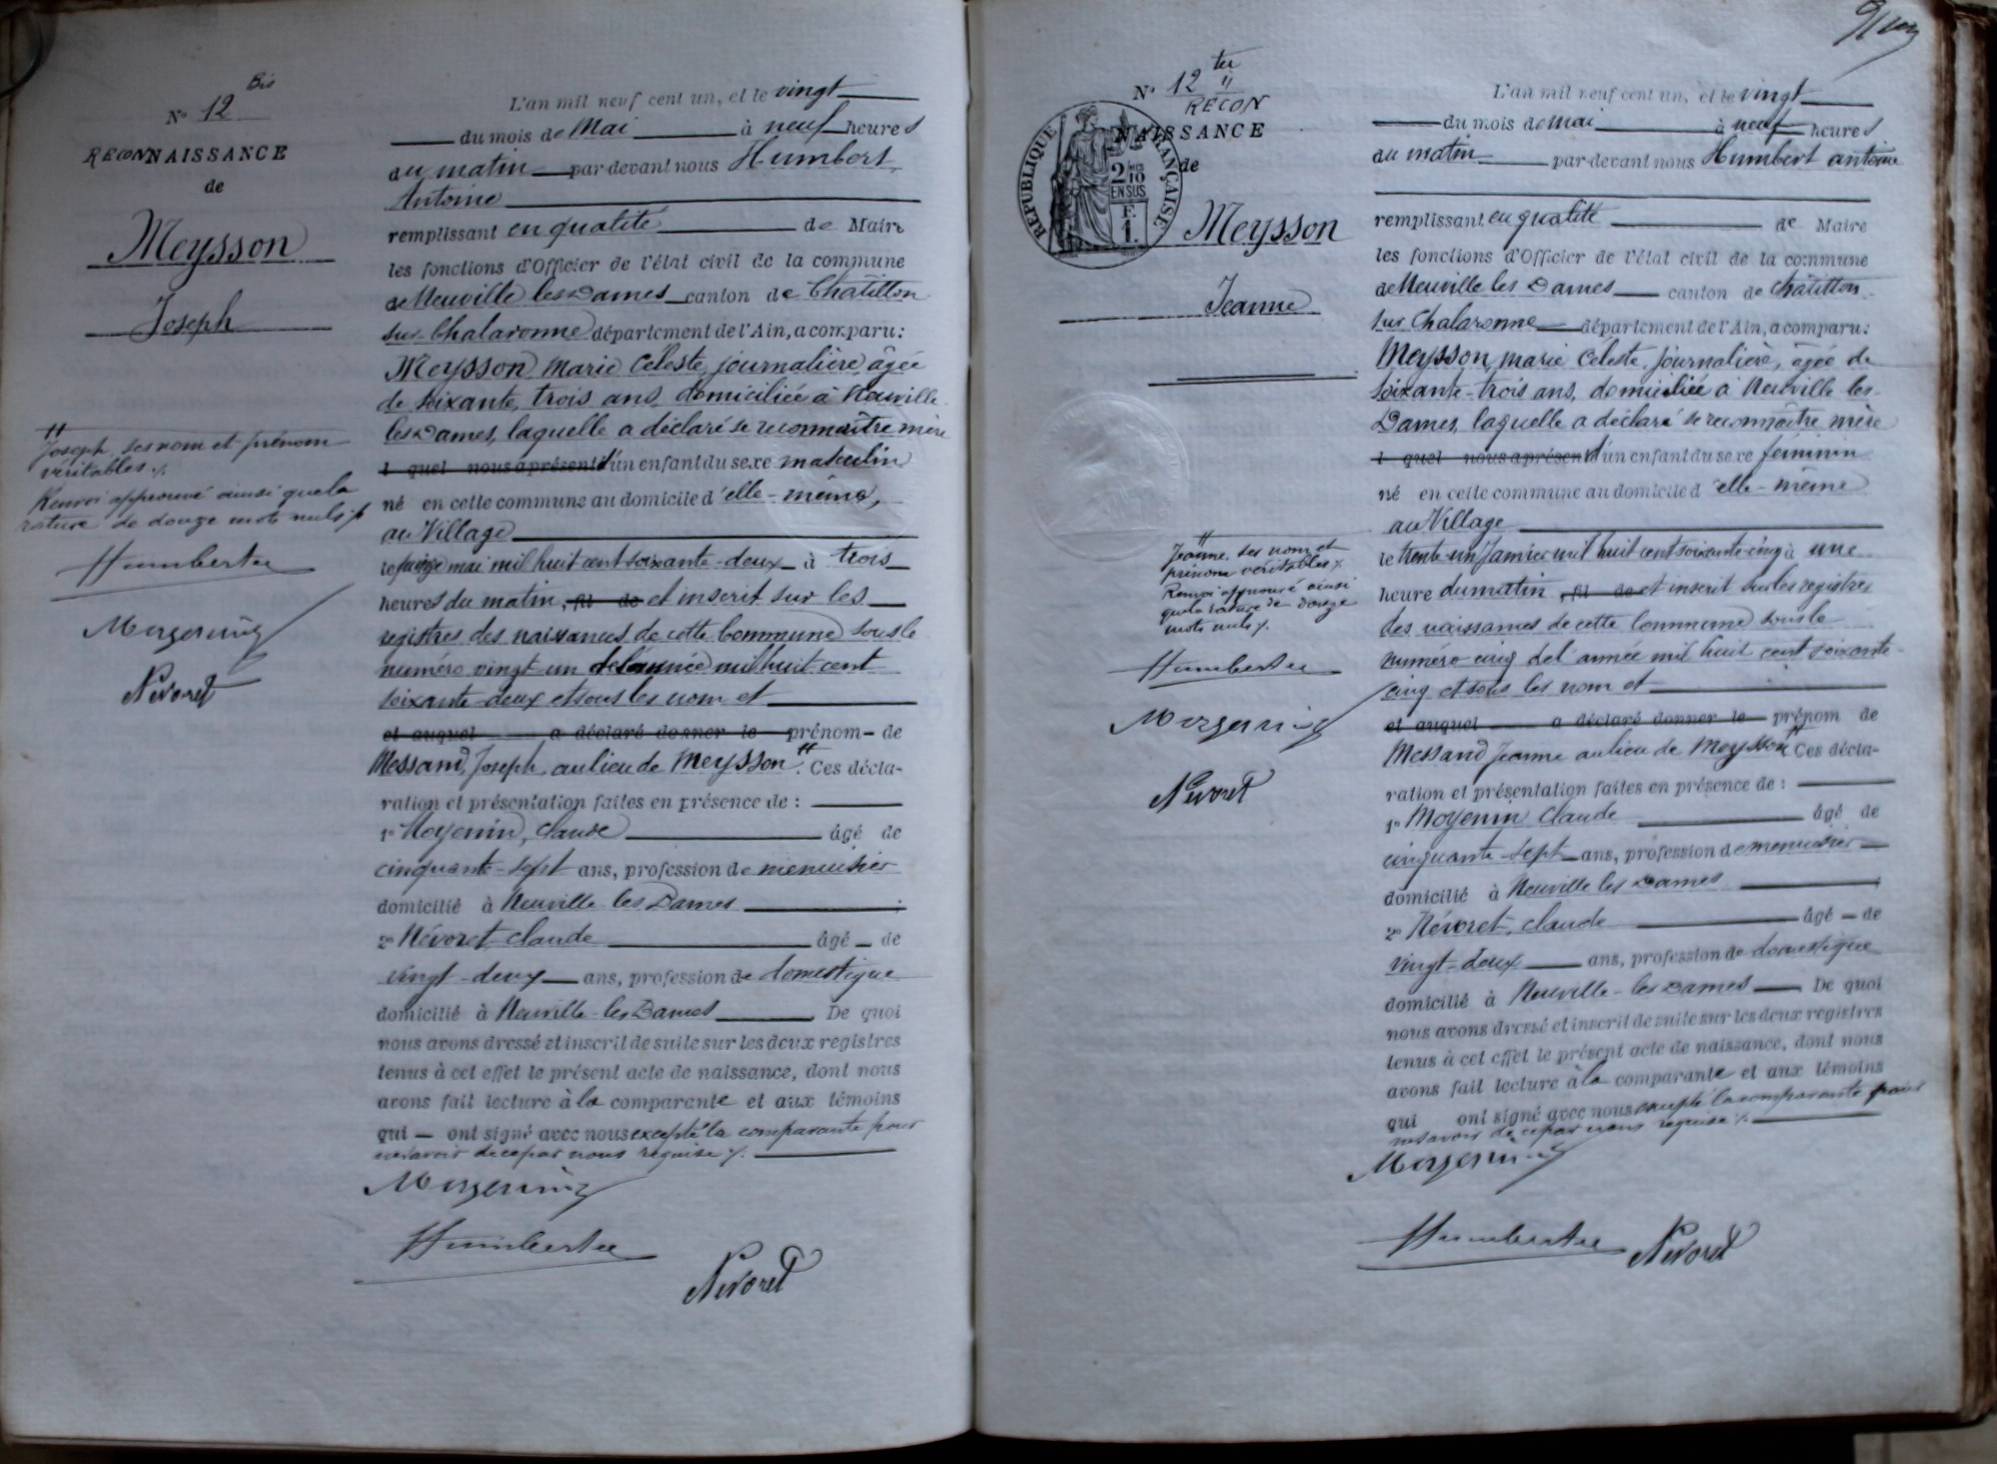 Bis
No 12
RECONNAISSANCE
de
Meysson
Joseph
H
Joseph, ses nom et prénom
véritables ./.
Renvoi approuvé ainsi que la
rature de douze mots nuls ./.
Humbert
Nevoret
L'an mil neuf cent un, et le vingt
du mois de Mai à neuf heures
du matin par devant nous Humbert
Antoine
remplissant en qualité de Maire
les fonctions d'Officier de l'état civil de la commune
de Neuville les Dames canton de Chatillon
sur Chalaronne département de l'Ain, a comparu:
Meysson Marie Céleste, journalière âgée
de soixante, trois ans domiciliée à Neuville
les Dames, laquelle a déclaré se reconnaître mère
l quel nous a présenté d'un enfant du sexe masculin
né en cette commune au domicile d'elle-même,
au Village
le mai mil huit cent soixante-deux à trois
heures du matin, fil de et inscrit sur les
registres des naissances de cette Commune sous le
numéro vingt un de l'année mil huit cent
soixante-deux et sous les nom et
et auquel a déclaré donner le prénom de
Messand, Joseph au lieu de Meysson H. Ces décla-
ration et présentation faites en présence de :
1° Moyenin, Claude âgé de
cinquante-sept ans, profession de menuisier
domicilié à Neuville les Dames ;
2° Névoret Claude âgé de
vingt-deux ans, profession de domestique
domicilié à Neuville-les Dames De quoi
nous avons dressé et inscrit de suite sur les deux registres
tenus à cet effet le présent acte de naissance, dont nous
avons fait lecture à la comparante et aux témoins
qui ont signé avec nous excepté la comparante pour
ne savoir de ce par nous requise ./.
Humbert
Nevoret
ter
No 12 "
RECON
NAISSANCE
de
RÉPUBLIQUE FRANÇAISE
2/10
EN SUS
F.
1.
Meysson
Jeanne
H
Jeanne, ses nom et
prénom véritables ./.
Renvoi approuvé ainsi
que la rature de douze
mots nuls ./.
Humbert
Nevoret
L'an mil neuf cent un, et le vingt
du mois de mai à neuf heures
du matin par devant nous Humbert antoine
remplissant en qualité de Maire
les fonctions d'Officier de l'état civil de la commune
de Neuville les Dames canton de Châtillon
sur Chalaronne département de l'Ain, a comparu:
Meysson, marie Céleste, journalière, âgée de
soixante-trois ans, domiciliée à Neuville les-
Dames, laquelle a déclaré se reconnaître mère
l quel nous a présenté d'un enfant du sexe féminin
né en cette commune au domicile d'elle-même
au Village
le trente-un janvier mil huit cent soixante-cinq à une
heure du matin, fil de et inscrit sur les registres
des naissances de cette Commune sous le
numéro cinq de l'année mil huit cent soixante-
cinq et sous les nom et
et auquel a déclaré donner le prénom de
Messand Jeanne au lieu de Meysson H Ces décla-
ration et présentation faites en présence de :
1° Moyenin Claude âgé de
cinquante-sept ans, profession de menuisier
domicilié à Neuville les Dames ;
2° Névoret, Claude âgé de
vingt-deux ans, profession de domestique
domicilié à Neuville-les Dames De quoi
nous avons dressé et inscrit de suite sur les deux registres
tenus à cet effet le présent acte de naissance, dont nous
avons fait lecture à la comparante et aux témoins
qui ont signé avec nous excepté la comparante pour
ne savoir de ce par nous requise ./.
Humbert
Nevoret